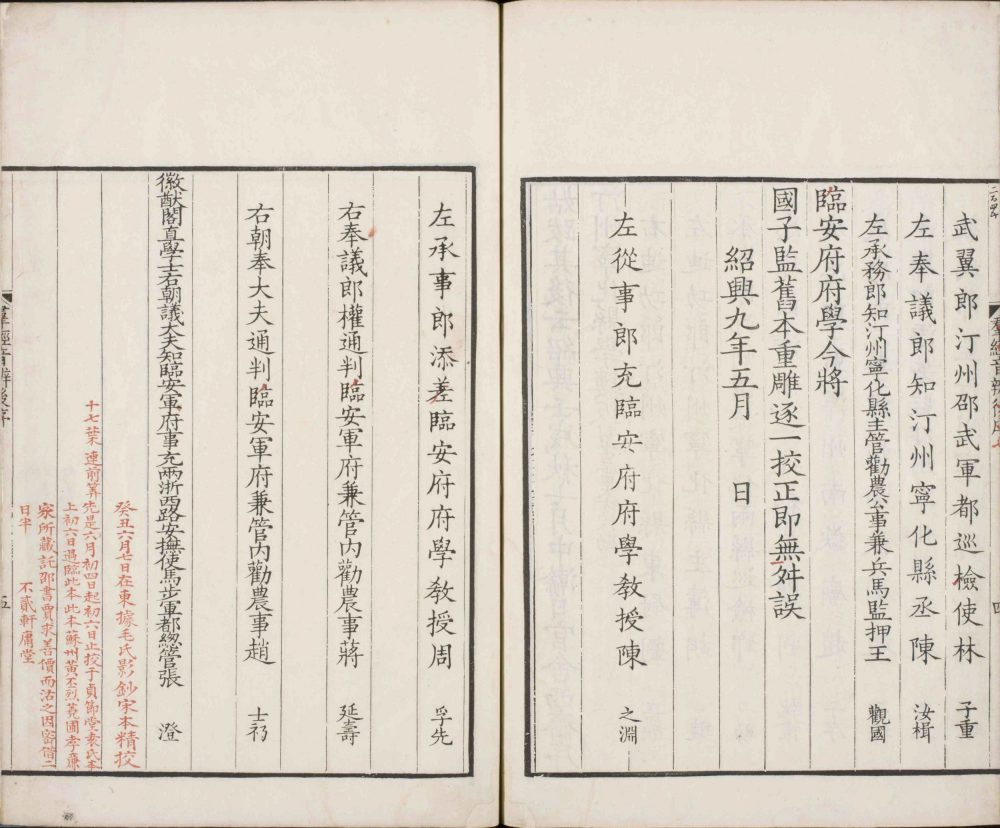 武翼郎汀州邵武軍都巡檢使林 子重
左奉議郎知汀州寧化縣丞陳 汝楫
左承務郎知汀州寧化縣主管勸農公事兼兵馬監押王 觀國
臨安府府學今將
國子監舊本重雕逐一挍正即無舛誤
紹興九年五月 日
左從事郎充臨安府府學教授陳 之淵
羣經音辨後序 四
左承事郎添差臨安府府學教授周 孚先
右奉議郎權通判臨安軍府兼管內勸農事蔣 延壽
右朝奉大夫通判臨安軍府兼管內勸農事趙 士礽
徽猷閣直學士右朝議大夫知臨安軍府事充兩浙西路安撫使馬步軍都緫管張 澄
癸丑六月七日在東據毛氏影鈔宋本精挍
十七葉 連前筭 先是六月初四日起初六日止挍于貞節堂袁氏本
上初六日過臨此本此本蘇州黃丕烈蕘圃孝廉
家所藏託郡書賈求善價而沽之因窓借二
日半 不貳軒庸堂
羣經音辨後序 五